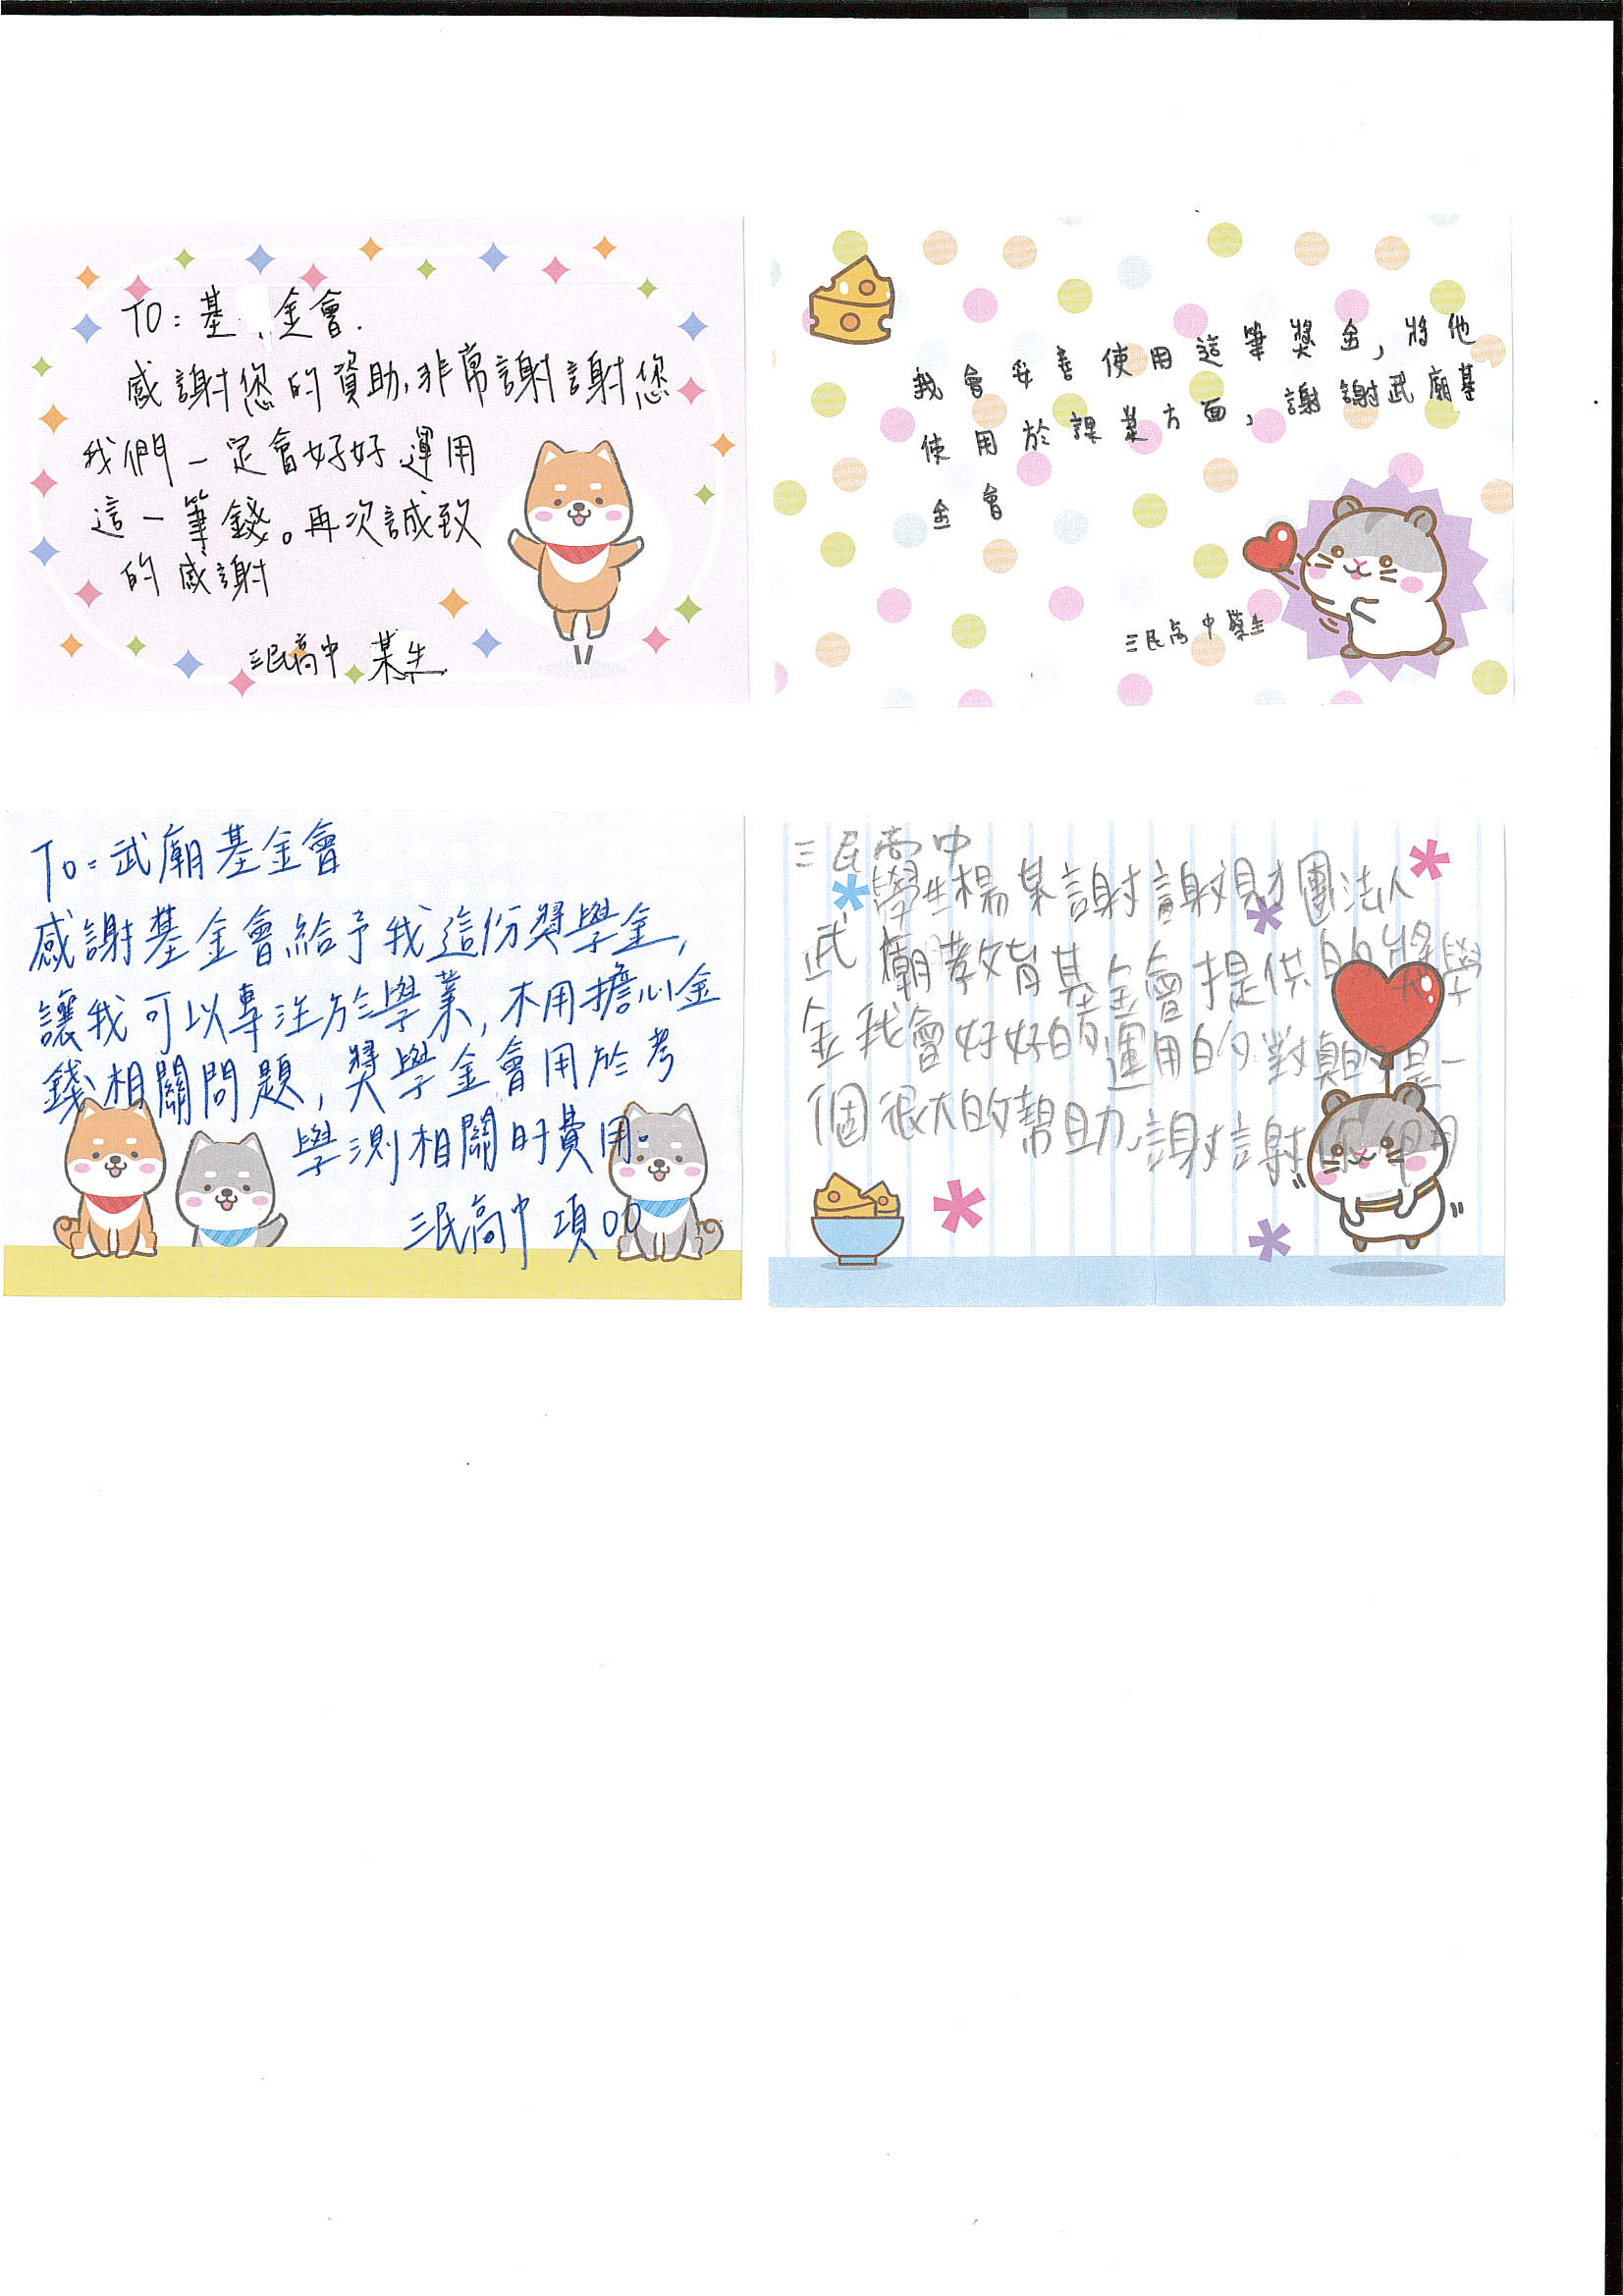 TO:基金會.
感謝您的資助,非常謝謝您
我們一定會好好運用
這一筆錢。再次誠致
的感謝
三民高中 某生
我會妥善使用這筆獎金,將他
使用於課業方面,謝謝武廟基
金會
三民高中蔡生
To:武廟基金會
感謝基金會給予我這份獎學金,
讓我可以專注於學業,不用擔心金
錢相關問題,獎學金會用於考
學測相關的費用。
三民高中 項OO
三民高中
學生楊某謝謝財團法人
武廟教育基金會提供的獎學
金我會好好的運用的對真的是一
個很大的幫助,謝謝